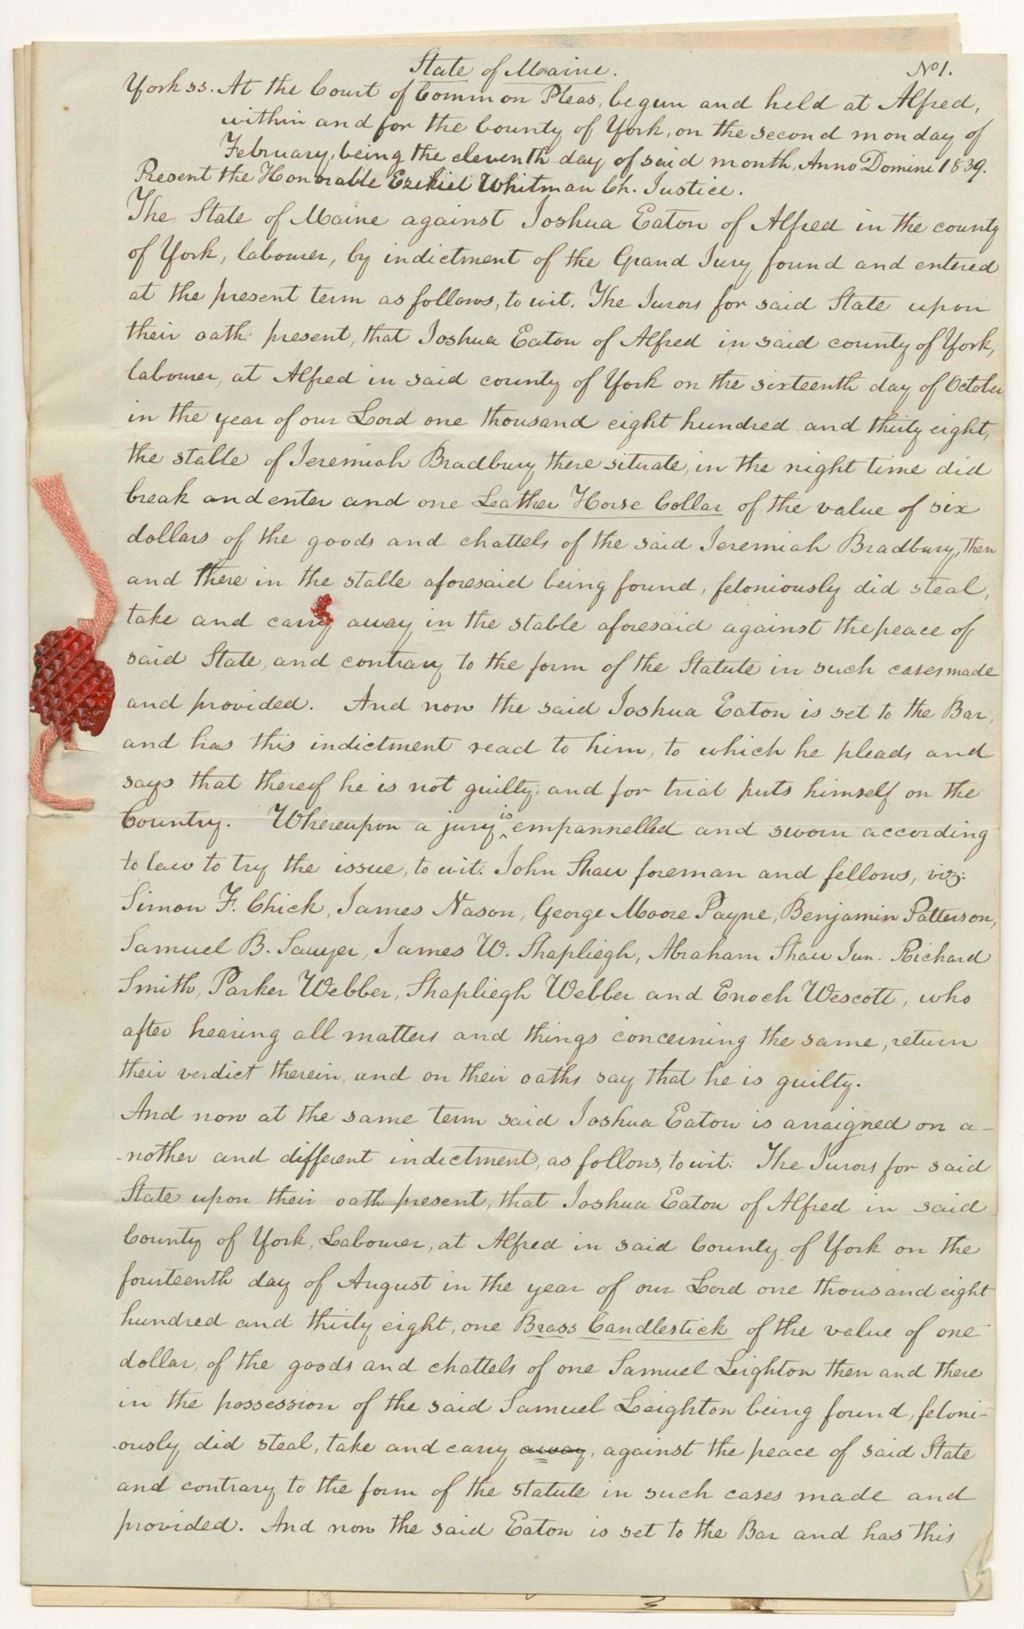 State of Maine. No 1.
York ss. At the Court of Common Pleas, begun and held at Alfred,
within and for the County of York, on the second monday of
February, being the eleventh day of said month, Anno Domini 1839.
Present the Honorable Ezekiel Whitman Ch. Justice.
The State of Maine against Joshua Eaton of Alfred in the county
of York, labourer, by indictment of the Grand Jury found and entered
at the present term as follows, to wit. The Jurors for said State upon
their oath present, that Joshua Eaton of Alfred in said county of York,
labourer, at Alfred in said county of York on the sixteenth day of October
in the year of our Lord one thousand eight hundred and thirty eight,
the stable of Jeremiah Bradbury there situate, in the night time did
break and enter and one Leather Horse Collar of the value of six
dollars of the goods and chattels of the said Jeremiah Bradbury, then
and there in the stable aforesaid being found, feloniously did steal,
take and carry away in the stable aforesaid against the peace of
said State, and contrary to the form of the Statute in such cases made
and provided. And now the said Joshua Eaton is set to the Bar,
and has this indictment read to him, to which he pleads and
says that thereof he is not guilty; and for trial puts himself on the
Country. Whereupon a jury is empannelled and sworn according
to law to try the issue, to wit: John Shaw foreman and fellows, viz:
Simon F. Chick, James Nason, George Moore Payne, Benjamin Patterson,
Samuel B. Sawyer, James W. Shapliegh, Abraham Shaw Jun. Richard
Smith, Parker Webber, Shapliegh Webber and Enoch Wescott, who
after hearing all matters and things concerning the same, return
their verdict therein, and on their oaths say that he is guilty.
And now at the same term said Joshua Eaton is arraigned on a-
-nother and different indictment, as follows, to wit: The Jurors for said
State upon their oath present, that Joshua Eaton of Alfred in said
County of York, Labourer, at Alfred in said County of York on the
fourteenth day of August in the year of our Lord one thousand eight
hundred and thirty eight, one Brass Candlestick of the value of one
dollar, of the goods and chattels of one Samuel Leighton then and there
in the possession of the said Samuel Leighton being found, feloni-
-ously did steal, take and carry away, against the peace of said State
and contrary to the form of the statute in such cases made and
provided. And now the said Eaton is set to the Bar and has this